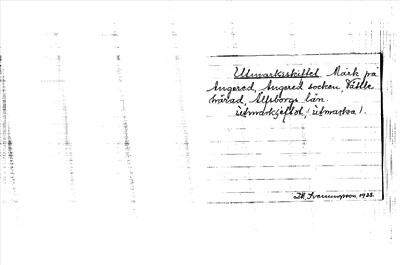 Utmarksskiftet. Mark på
Angered, Angered socken, Vättle
härad, Älfsborgs län.
utmarkjeftot, (utmarka).
Svenungsson, 1933.